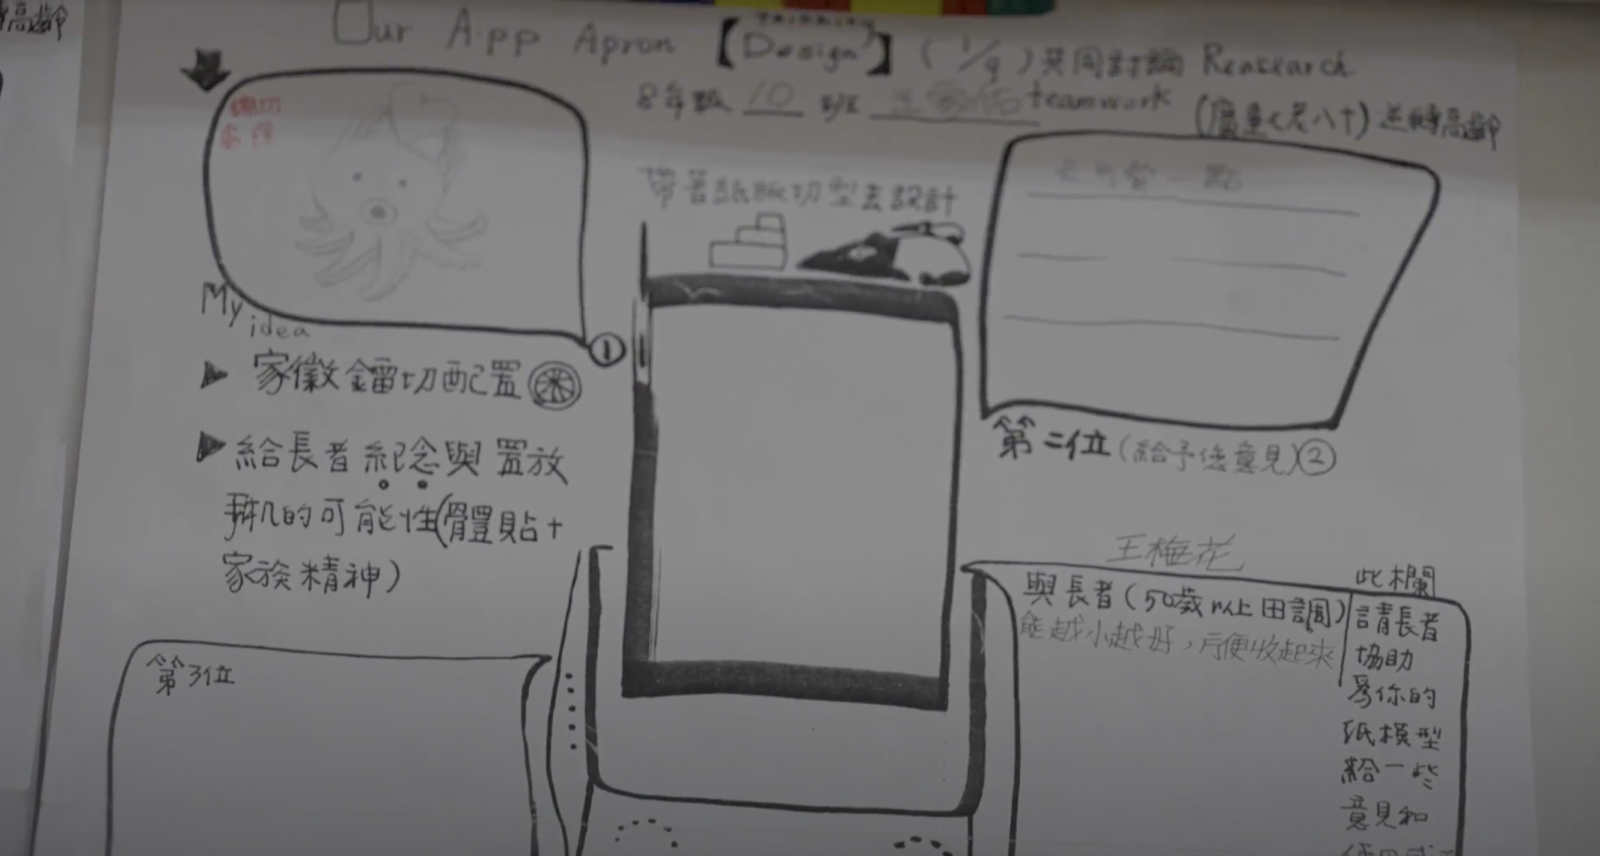 Our App Apron 【Thinking Design】 (1/9) 共同討論 Reasearch
8年級 10 班 teamwork (厝邊七老八十) 逆轉高齡
高齡
帶著紙雕切型去設計
My idea
①
▶ 家徽鐳切配置
▶ 給長者紀念與置放
手机的可能性(體貼+
家族精神)
第二位(給予後意見)②
第3位
王梅花
與長者(50歲以上田調)
能越小越好,方便收起來
此欄
請長者
協助
為你的
紙模型
給一些
意見和